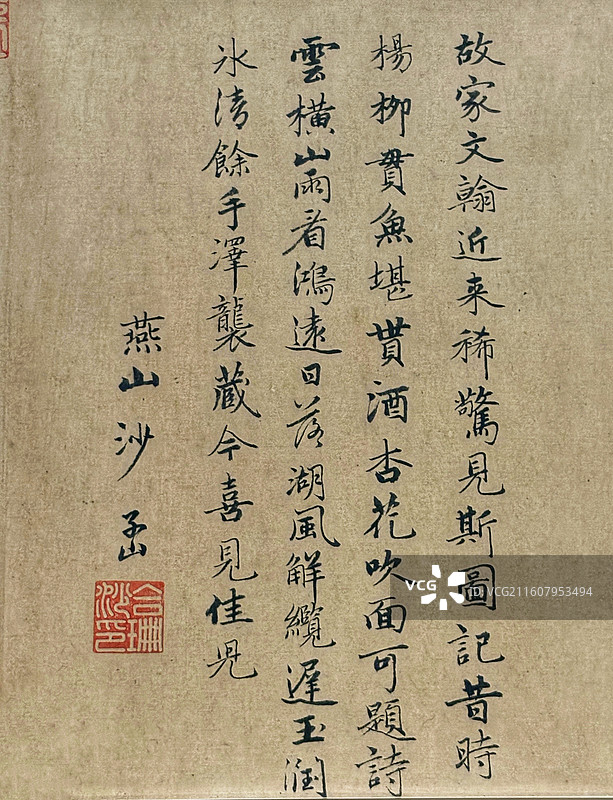 故家文翰近来稀驚見斯圖記昔時
楊柳貫魚堪貰酒杏花吹面可題詩
雲橫山雨看鴻遠日落湖風解纜遲玉潤
氷清餘手澤襲藏今喜見佳兒
燕山沙
VCG
VCG211607953494